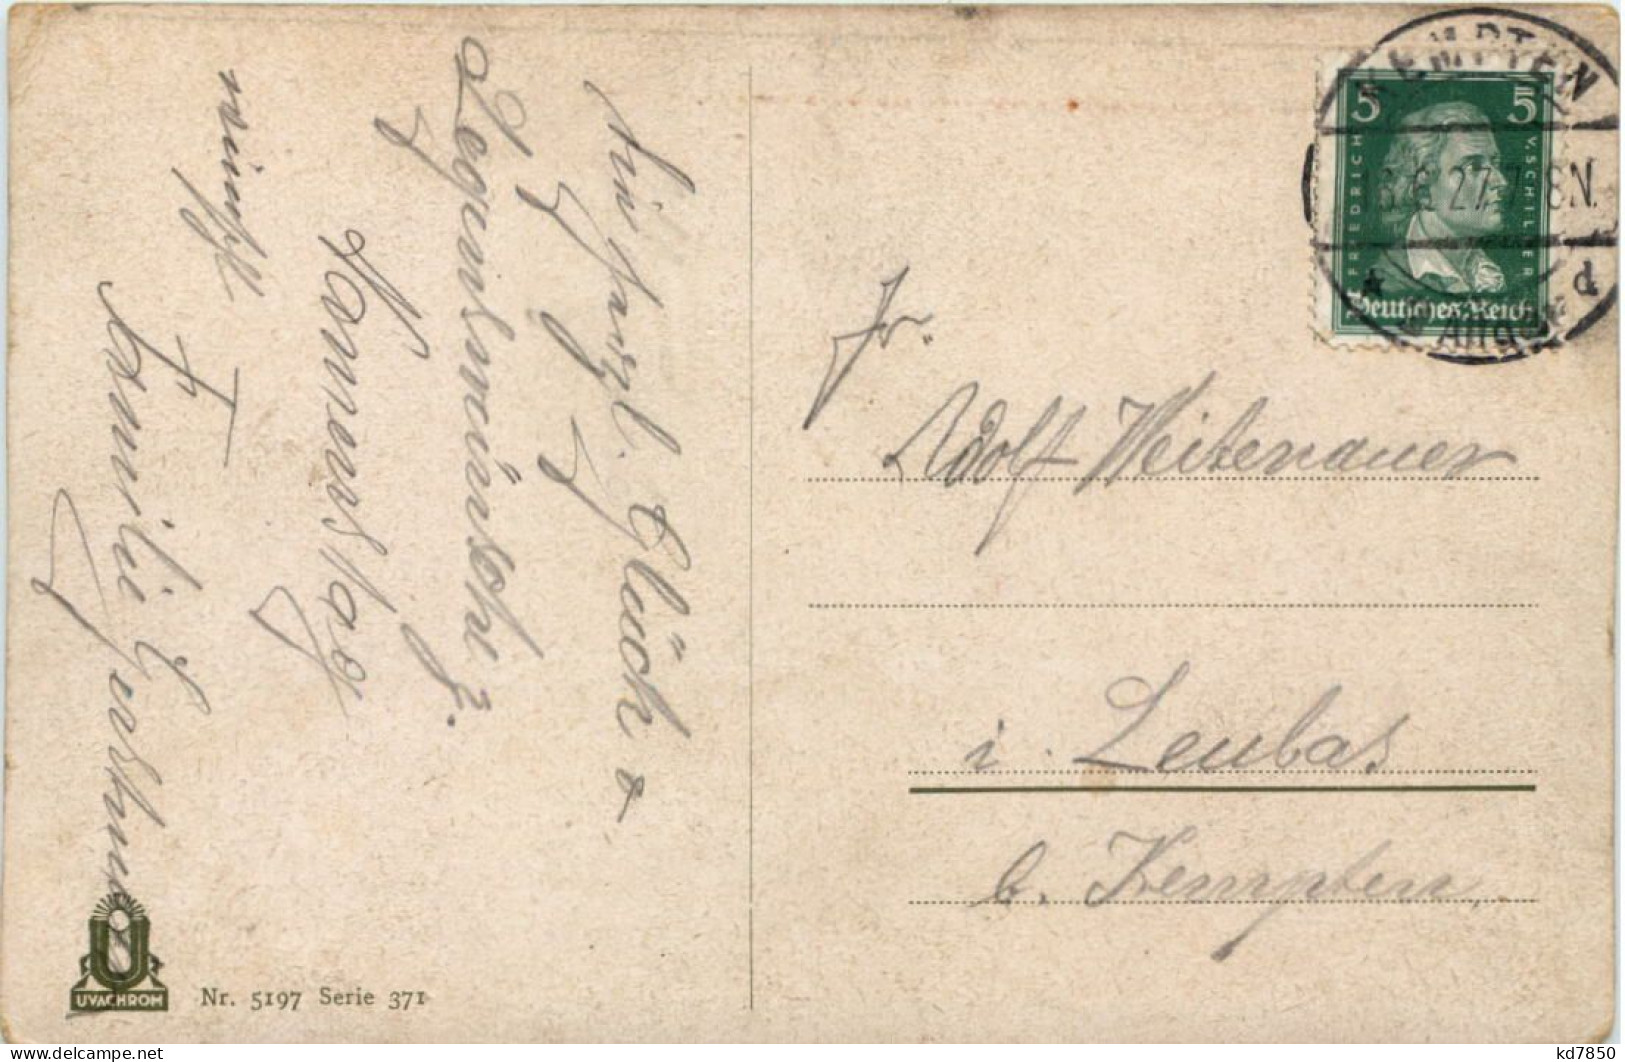 Die herzl. Glück &
Segenswünsche z.
Namenstag
wünscht
Familie
Fr.
Adolf Weitenauer
i. Leubas
b. Kempten
KEMPTEN
6.27.7-8N.
Allgäu
5 5
FRIEDRICH V. SCHILLER
Deutsches Reich
UVACHROM
Nr. 5197 Serie 371
kd7850